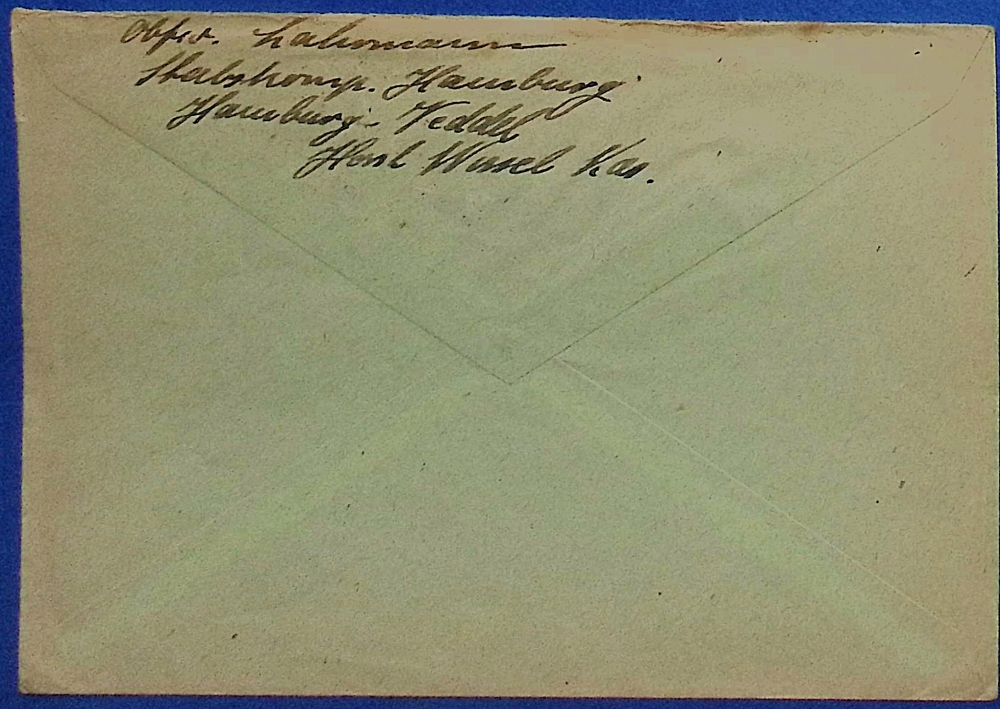 Obfw. Lahrmann
Stabskomp. Hamburg
Hamburg- Veddel
Horst Wessel Kas.